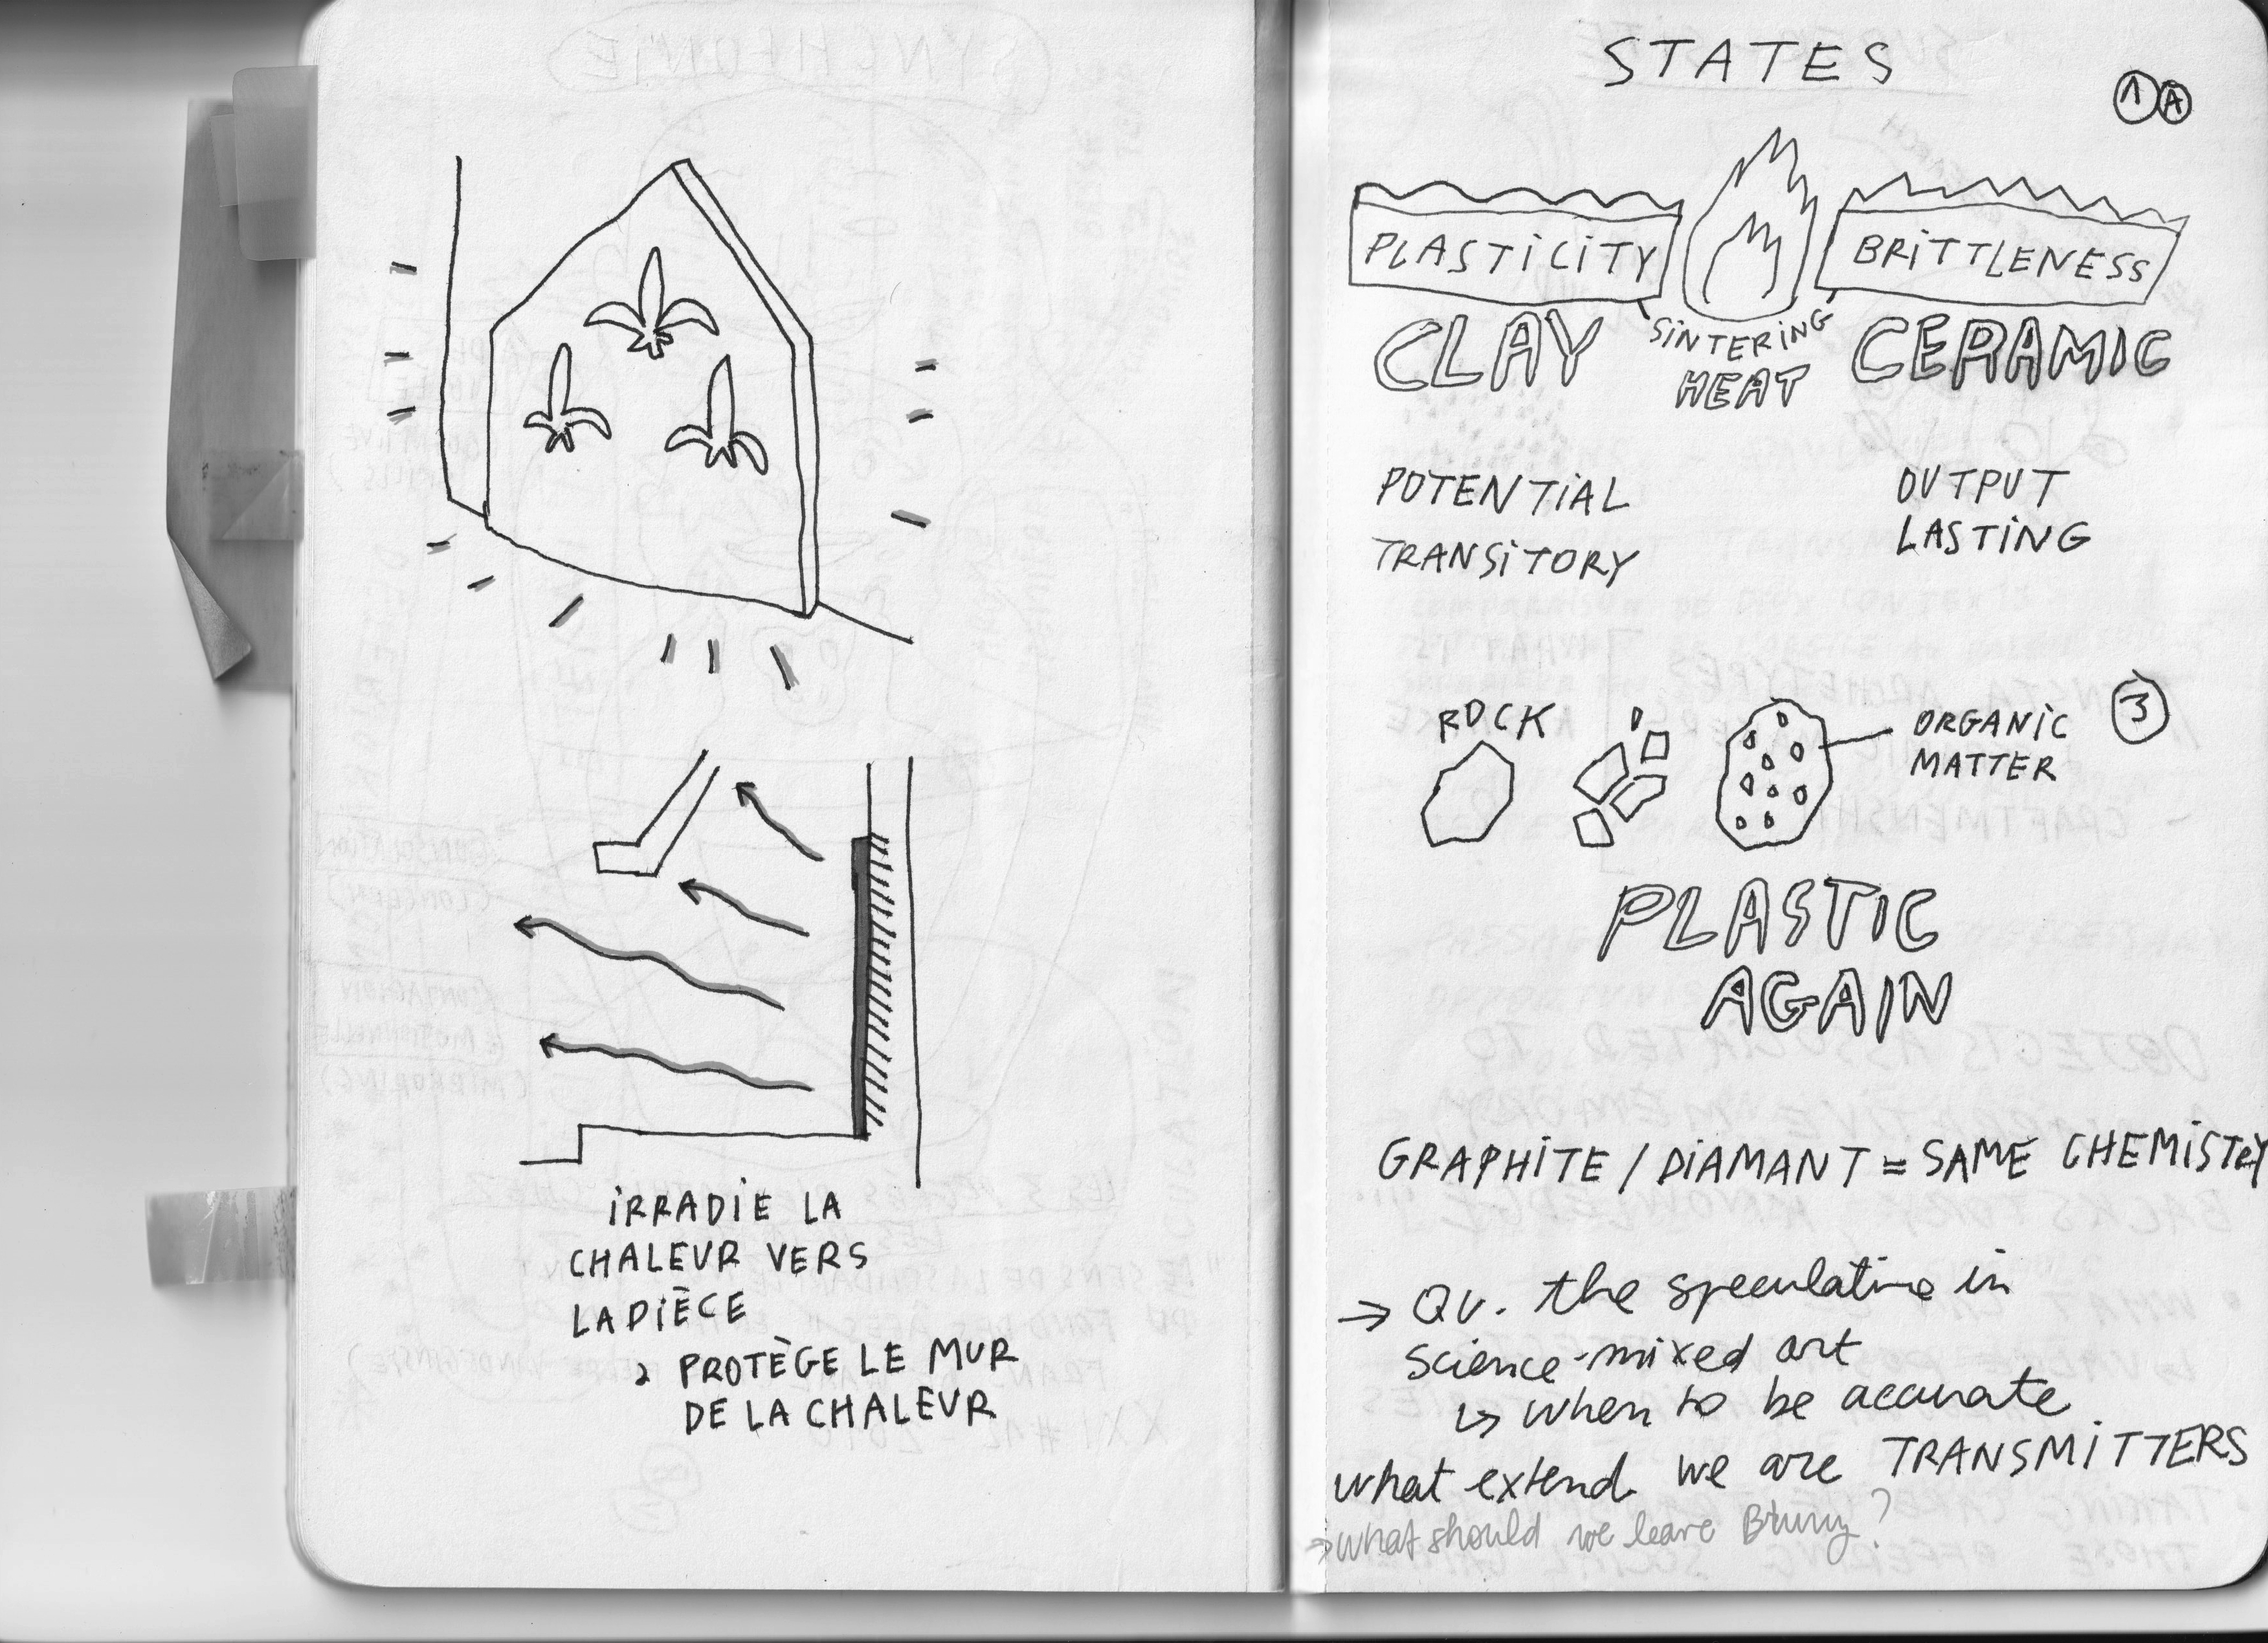 IRRADIE LA
CHALEUR VERS
LA PIÈCE
& PROTÈGE LE MUR
DE LA CHALEUR
STATES
1 A
PLASTICITY
BRITTLENESS
CLAY
SINTERING
HEAT
CERAMIC
POTENTIAL
TRANSITORY
OUTPUT
LASTING
ROCK
ORGANIC
MATTER
3
PLASTIC
AGAIN
GRAPHITE / DIAMANT = SAME CHEMISTRY
→ Qu. the speculative in
science-mixed art
↳ when to be accurate
what extend we are TRANSMITTERS
→ what should we leave ?